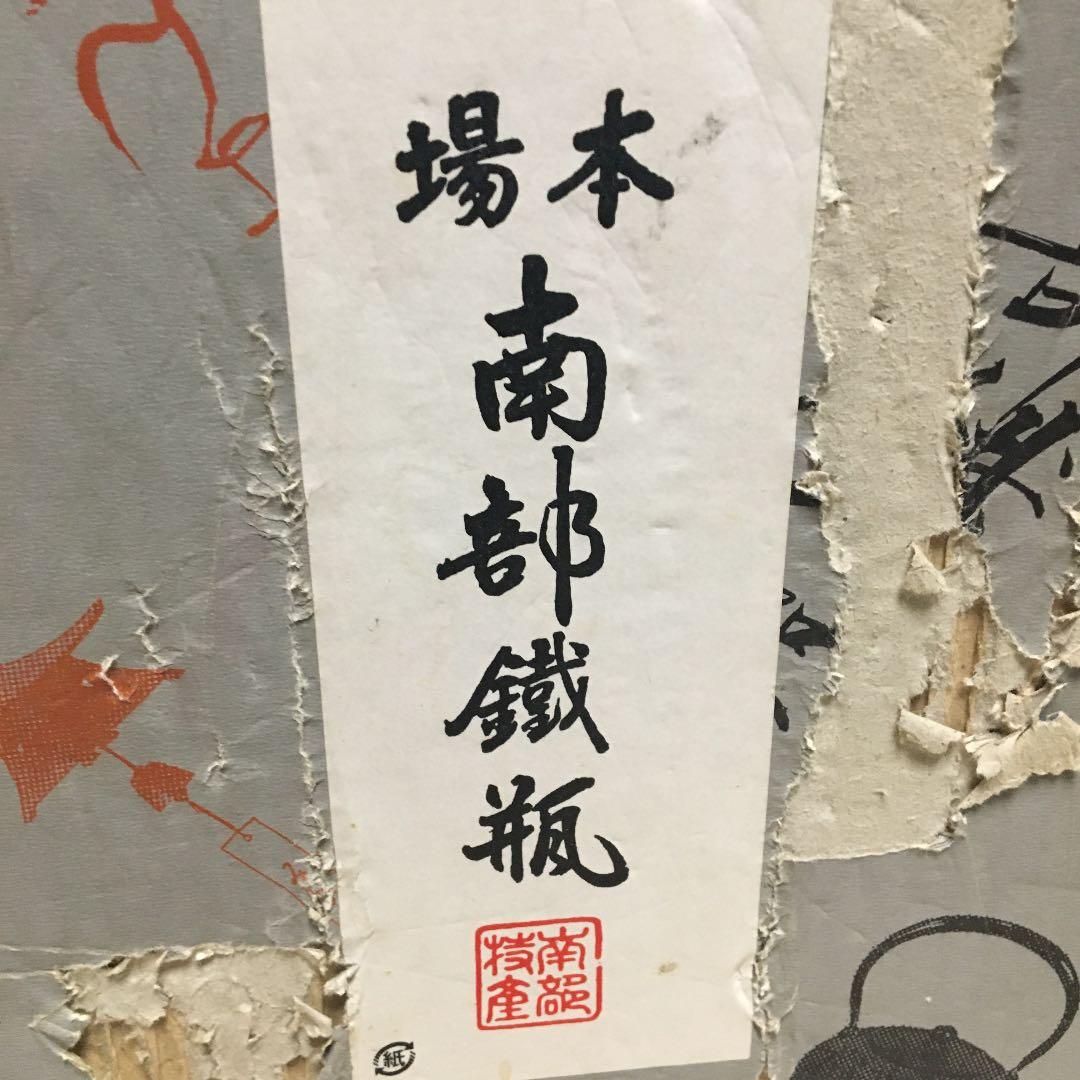 本場
南部鐵瓶
南部
特産
紙